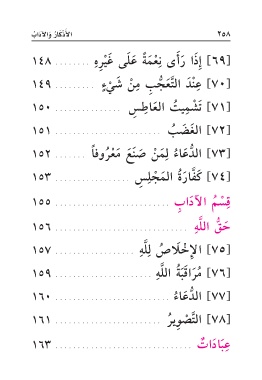 ٢٥٨ الأَذْكَارُ وَالآدَابُ
[٦٩] إِذَا رَأَى نِعْمَةً عَلَى غَيْرِهِ ........ ١٤٨
[٧٠] عِنْدَ التَّعَجُّبِ مِنْ شَيْءٍ ........ ١٤٩
[٧١] تَشْمِيتُ العَاطِسِ ........ ١٥٠
[٧٢] الغَضَبُ ........ ١٥١
[٧٣] الدُّعَاءُ لِمَنْ صَنَعَ مَعْرُوفاً ........ ١٥٢
[٧٤] كَفَّارَةُ المَجْلِسِ ........ ١٥٣
قِسْمُ الآدَابِ ........ ١٥٥
حَقُّ اللَّهِ ........ ١٥٦
[٧٥] الإِخْلَاصُ لِلَّهِ ........ ١٥٧
[٧٦] مُرَاقَبَةُ اللَّهِ ........ ١٥٩
[٧٧] الدُّعَاءُ ........ ١٦٠
[٧٨] التَّصْوِيرُ ........ ١٦١
عِبَادَاتٌ ........ ١٦٣